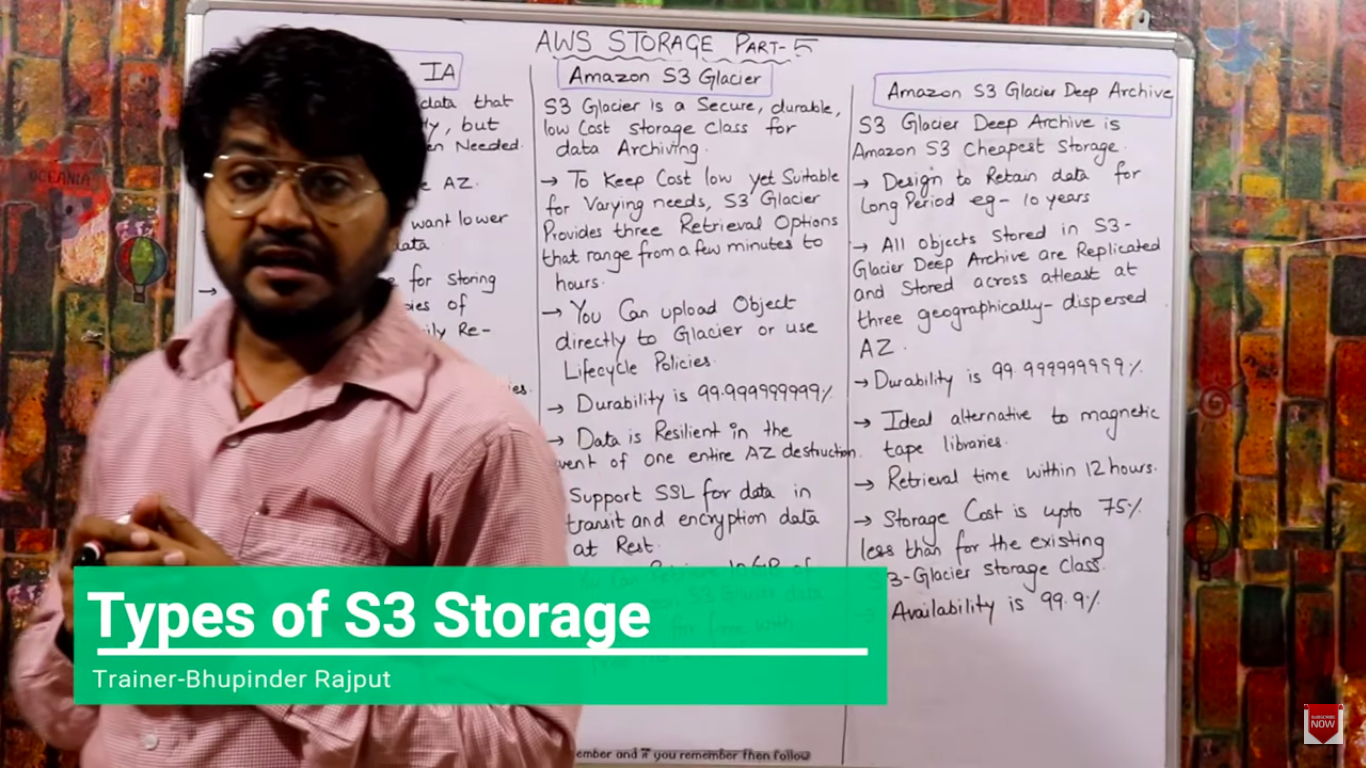 AWS STORAGE PART-5
IA
data that
y, but
en Needed.
e AZ.
want lower
data
→
for storing
ies of
ily Re-
ies.
Amazon S3 Glacier
S3 Glacier is a Secure, durable,
low Cost storage class for
data Archiving.
→ To Keep Cost low yet Suitable
for Varying needs, S3 Glacier
Provides three Retrieval Options
that range from a few minutes to
hours.
→ You Can upload Object
directly to Glacier or use
Lifecycle Policies.
→ Durability is 99.999999999%
→ Data is Resilient in the
vent of one entire AZ destruction.
Support SSL for data in
transit and encryption data
at Rest.
You Can Retrieve 10GB of
S3 Glacier data
for free with
Amazon S3 Glacier Deep Archive
S3 Glacier Deep Archive is
Amazon S3 Cheapest Storage.
→ Design to Retain data for
Long Period eg- 10 years
→ All objects Stored in S3-
Glacier Deep Archive are Replicated
and Stored across atleast at
three geographically-dispersed
AZ.
→ Durability is 99.999999999%
→ Ideal alternative to magnetic
tape libraries.
→ Retrieval time within 12 hours.
→ Storage Cost is upto 75%
less than for the existing
S3-Glacier storage class.
→ Availability is 99.9%
Types of S3 Storage
Trainer-Bhupinder Rajput
ember and if you remember then follow
OCEANIA
SUBSCRIBE
NOW